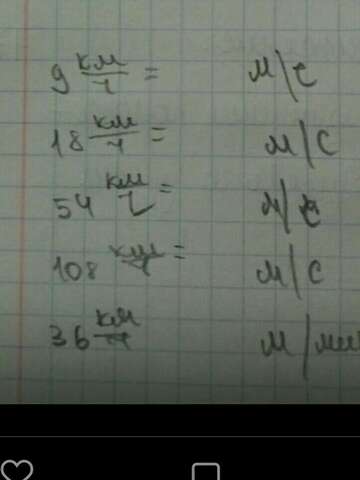 9 км/ч = м/с
18 км/ч = м/с
54 км/ч = м/с
108 км/ч = м/с
36 км/ч м/мин